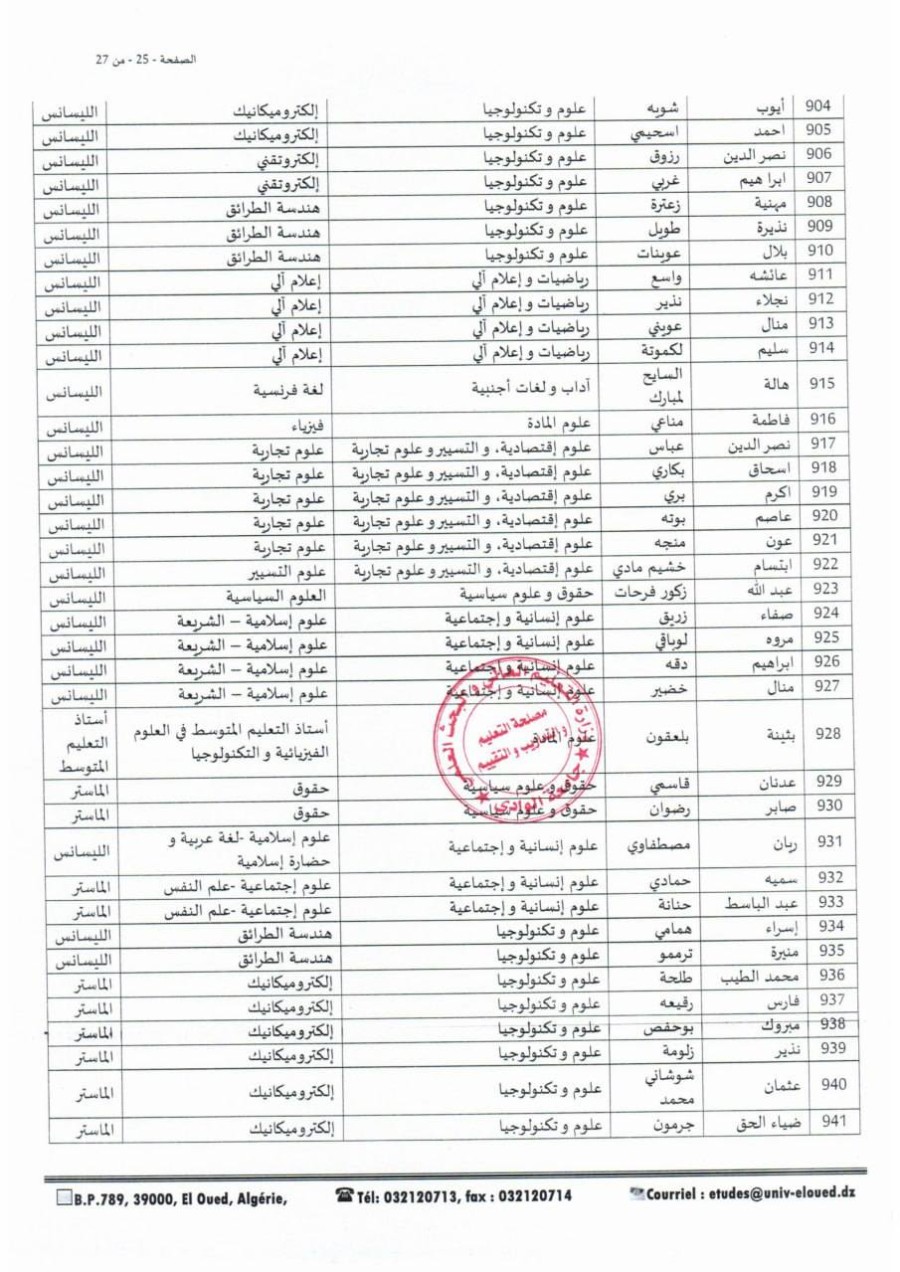 الصفحة - 25 - من 27
904 أيوب شوبه علوم و تكنولوجيا إلكتروميكانيك الليسانس
905 احمد اسحيمي علوم و تكنولوجيا إلكتروميكانيك الليسانس
906 نصر الدين رزوق علوم و تكنولوجيا إلكتروتقني الليسانس
907 ابراهيم غربي علوم و تكنولوجيا إلكتروتقني الليسانس
908 مهنية زعترة علوم و تكنولوجيا هندسة الطرائق الليسانس
909 نذيرة طويل علوم و تكنولوجيا هندسة الطرائق الليسانس
910 بلال عوينات علوم و تكنولوجيا هندسة الطرائق الليسانس
911 عائشه واسع رياضيات و إعلام آلي إعلام آلي الليسانس
912 نجلاء نذير رياضيات و إعلام آلي إعلام آلي الليسانس
913 منال عويني رياضيات و إعلام آلي إعلام آلي الليسانس
914 سليم لكموتة رياضيات و إعلام آلي إعلام آلي الليسانس
915 هالة السايح لمبارك آداب و لغات أجنبية لغة فرنسية الليسانس
916 فاطمة مناعي علوم المادة فيزياء الليسانس
917 نصر الدين عباس علوم إقتصادية، و التسيير و علوم تجارية علوم تجارية الليسانس
918 اسحاق بكاري علوم إقتصادية، و التسيير و علوم تجارية علوم تجارية الليسانس
919 اكرم بري علوم إقتصادية، و التسيير و علوم تجارية علوم تجارية الليسانس
920 عاصم بوته علوم إقتصادية، و التسيير و علوم تجارية علوم تجارية الليسانس
921 عون منجه علوم إقتصادية، و التسيير و علوم تجارية علوم تجارية الليسانس
922 ابتسام خشيم مادي علوم إقتصادية، و التسيير و علوم تجارية علوم التسيير الليسانس
923 عبد الله زكور فرحات حقوق و علوم سياسية العلوم السياسية الليسانس
924 صفاء زريق علوم إنسانية و إجتماعية علوم إسلامية – الشريعة الليسانس
925 مروه لوباقي علوم إنسانية و إجتماعية علوم إسلامية – الشريعة الليسانس
926 ابراهيم دقه علوم إنسانية و إجتماعية علوم إسلامية – الشريعة الليسانس
927 منال خضير علوم إنسانية و إجتماعية علوم إسلامية – الشريعة الليسانس
928 بثينة بلعقون علوم المادة أستاذ التعليم المتوسط في العلوم الفيزيائية و التكنولوجيا أستاذ التعليم المتوسط
929 عدنان قاسمي حقوق و علوم سياسية حقوق الماستر
930 صابر رضوان حقوق و علوم سياسية حقوق الماستر
931 ريان مصطفاوي علوم إنسانية و إجتماعية علوم إسلامية -لغة عربية و حضارة إسلامية الليسانس
932 سميه حمادي علوم إنسانية و إجتماعية علوم إجتماعية -علم النفس الماستر
933 عبد الباسط حنانة علوم إنسانية و إجتماعية علوم إجتماعية -علم النفس الماستر
934 إسراء همامي علوم و تكنولوجيا هندسة الطرائق الليسانس
935 منيرة ترممو علوم و تكنولوجيا هندسة الطرائق الليسانس
936 محمد الطيب طلحة علوم و تكنولوجيا إلكتروميكانيك الماستر
937 فارس رقيعه علوم و تكنولوجيا إلكتروميكانيك الماستر
938 مبروك بوحفص علوم و تكنولوجيا إلكتروميكانيك الماستر
939 نذير زلومة علوم و تكنولوجيا إلكتروميكانيك الماستر
940 عثمان شوشاني محمد علوم و تكنولوجيا إلكتروميكانيك الماستر
941 ضياء الحق جرمون علوم و تكنولوجيا إلكتروميكانيك الماستر
وزارة التعليم العالي و البحث العلمي
مصلحة التعليم
و التدريب و التقييم
جامعة الوادي
B.P.789, 39000, El Oued, Algérie, Tél: 032120713, fax : 032120714 Courriel : etudes@univ-eloued.dz